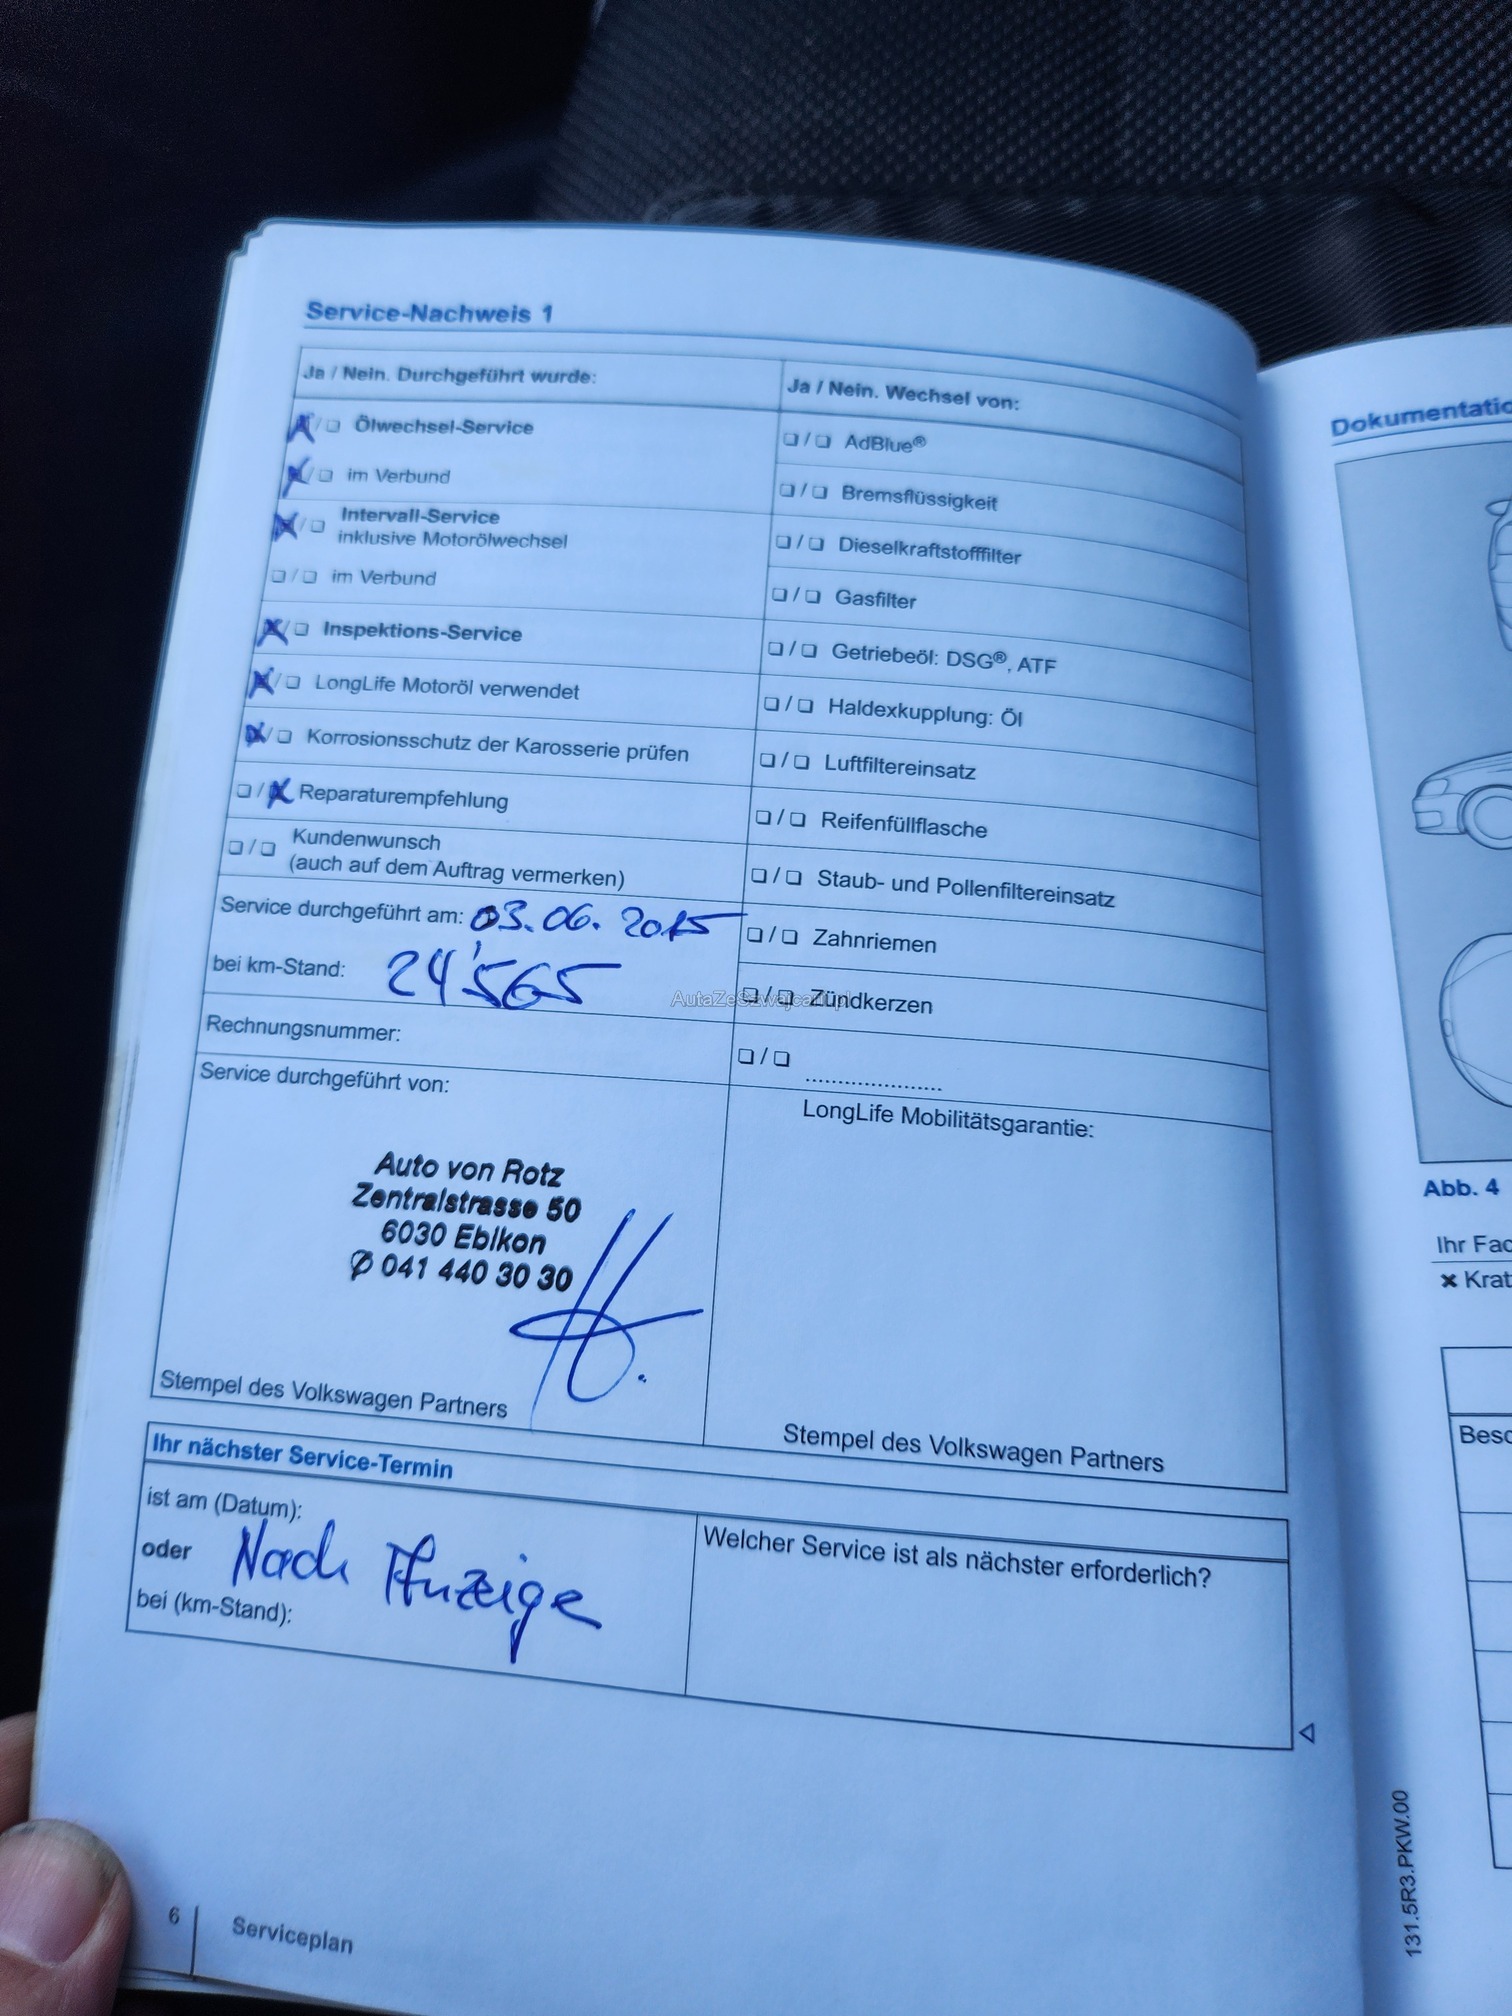 Service-Nachweis 1
Ja / Nein. Durchgeführt wurde:
Ölwechsel-Service
im Verbund
Intervall-Service
inklusive Motorölwechsel
im Verbund
Inspektions-Service
LongLife Motoröl verwendet
Korrosionsschutz der Karosserie prüfen
Reparaturempfehlung
Kundenwunsch
(auch auf dem Auftrag vermerken)
Service durchgeführt am: 03.06.2015
bei km-Stand: 24'565
Rechnungsnummer:
Service durchgeführt von:
Auto von Rotz
Zentralstrasse 50
6030 Ebikon
✆ 041 440 30 30
Stempel des Volkswagen Partners
Ja / Nein. Wechsel von:
AdBlue®
Bremsflüssigkeit
Dieselkraftstofffilter
Gasfilter
Getriebeöl: DSG®, ATF
Haldexkupplung: Öl
Luftfiltereinsatz
Reifenfüllflasche
Staub- und Pollenfiltereinsatz
Zahnriemen
Zündkerzen
AutaZeSzwajcarii.pl
LongLife Mobilitätsgarantie:
Stempel des Volkswagen Partners
Ihr nächster Service-Termin
ist am (Datum):
oder Nach Anzeige
bei (km-Stand):
Welcher Service ist als nächster erforderlich?
6 Serviceplan
Abb. 4
131.5R3.PKW.00